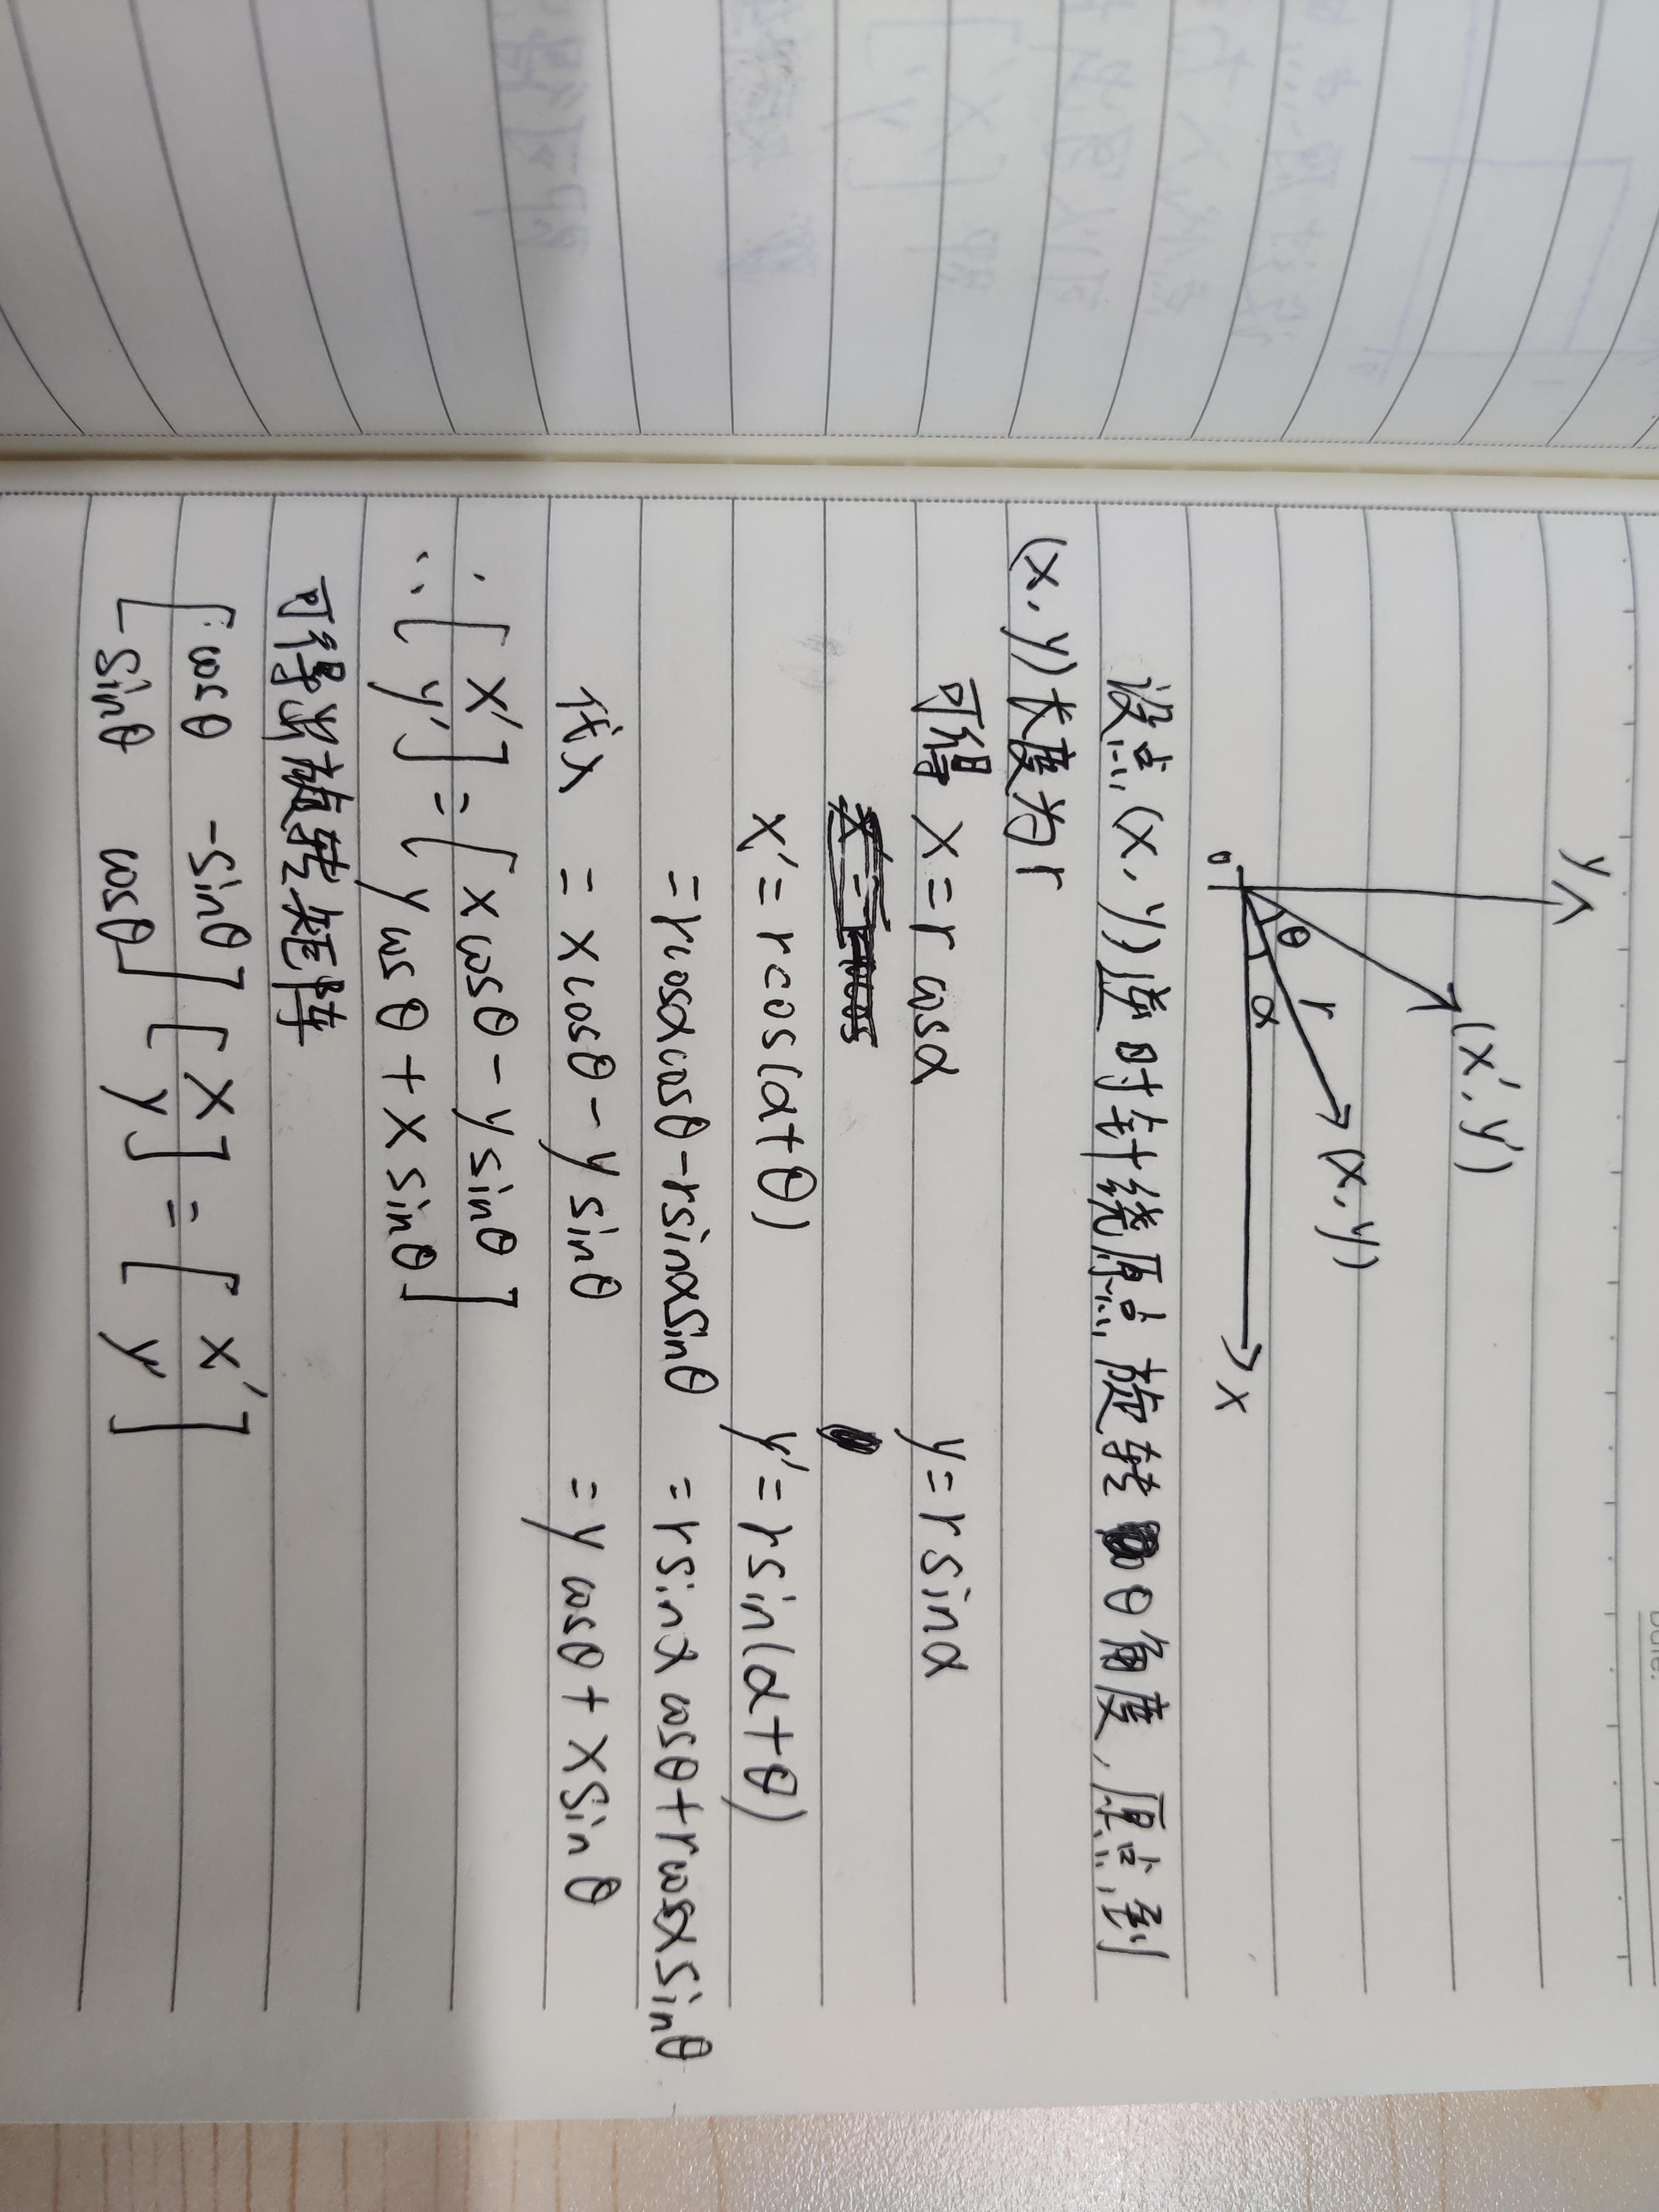 y
(x', y')
(x, y)
θ r
α
0 x
设点(x, y)逆时针绕原点旋转θ角度,原点到
(x, y)长度为r
可得 x = r cosα y = r sinα
x' = r cos(α+θ) y' = r sin(α+θ)
= rcosαcosθ - rsinαsinθ = r sinα cosθ + rcosαsinθ
代入 = x cosθ - y sinθ = y cosθ + x sinθ
∴ [ x' ] = [ x cosθ - y sinθ ]
[ y' ] [ y cosθ + x sinθ ]
可得出旋转矩阵
[ cosθ -sinθ ] [ x ] = [ x' ]
[ sinθ cosθ ] [ y ] [ y' ]